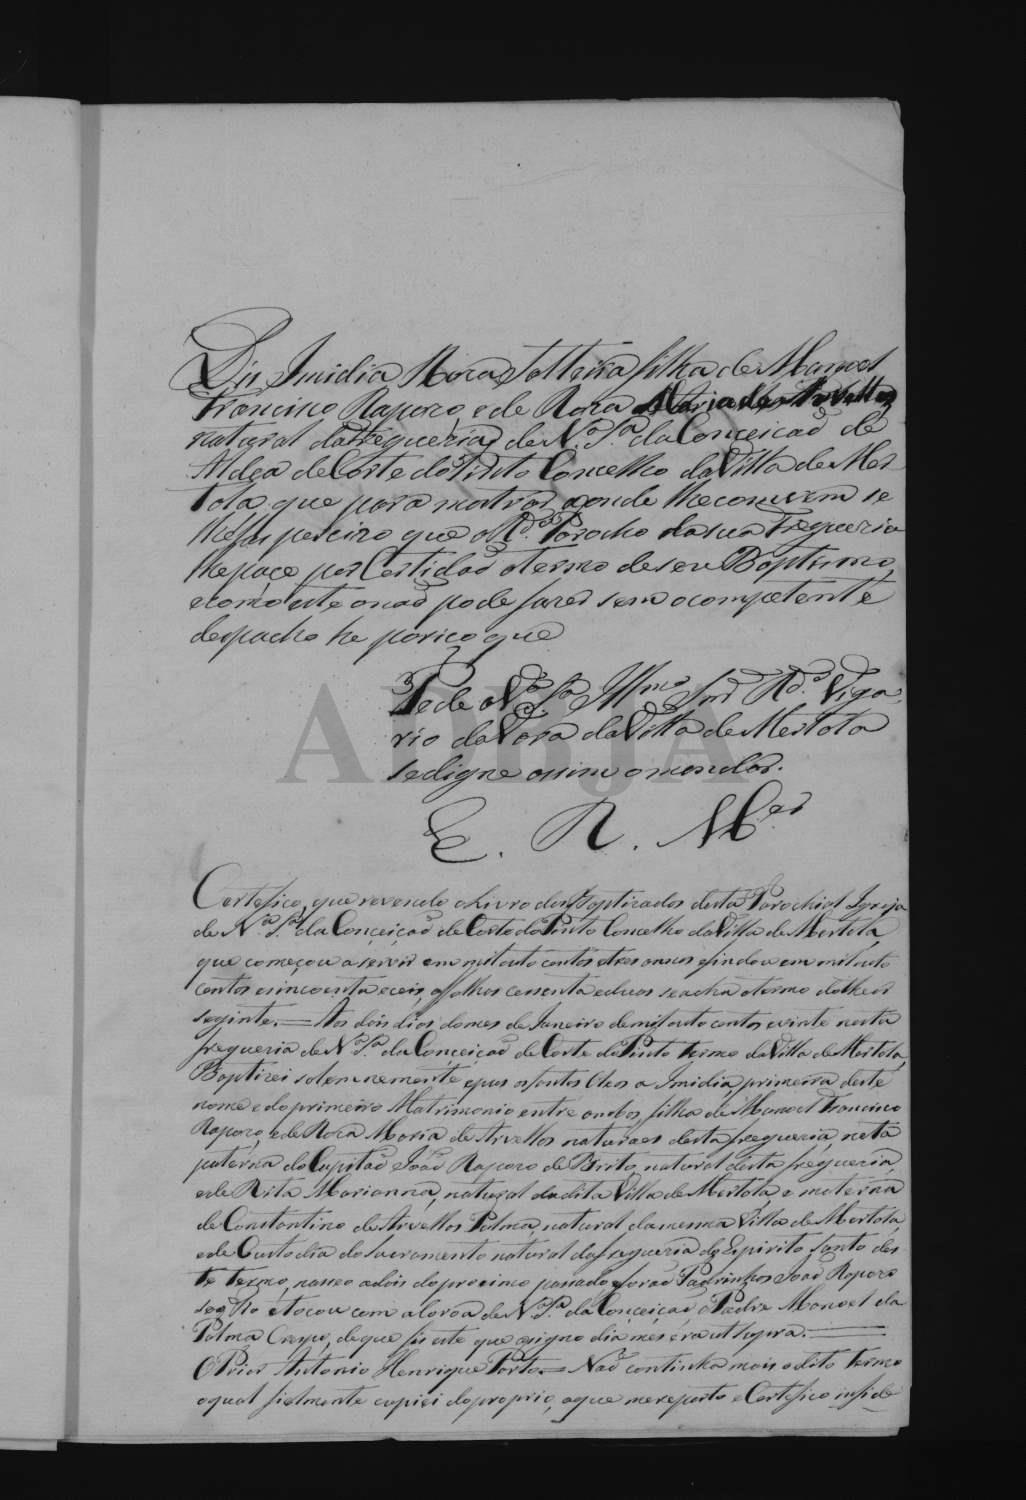 Dis Imidia Roza, Solteira filha de Manoel
Francisco Rapozo, e de Roza Maria de Arvellos
natural da Fregueria de N.ª S.ª da Conceicaõ de
Aldea de Corte do Pinto Concelho da Villa de Mer
tola que para mostrar aonde lhe convem se
lhe fas perciro que o R.do Parocho da sua Fregueria
lhe paçe por Certidaõ o termo de seu Baptismo,
e como este o naõ pode fazer sem o competente
despacho he porico que
Pede a V.ª S.ª Ill.mo Snr. R.do Viga
rio da Vara da Villa de Mertola
se digne assim o mandar.
E. R. M.ce
Certefico, que revendo o Livro dos Baptizados desta Parochial Igreja
de N.ª S.ª da Conçeiçaõ de Corte do Pinto Concelho da Villa de Mertola,
que começou a servir em mil outo centos e tres annos e findou em mil outo
centos e sincoenta e ceis, a folhas cessenta e duas se acha o termo do theor
seginte. = Aos dois dias do mes de Janeiro de mil outo centos e vinte nesta
fregueria de N.ª S.ª da Conçeicaõ de Corte do Pinto termo da Villa de Mertola,
Baptizei solemnemente e pus os santos Oleos a Imidia, primeira deste
nome e do primeiro Matrimonio entre ambos, filha de Manoel Francisco
Rapozo, e de Roza Maria de Arvellos naturaes desta fregueria, neta
paterna do Capitaõ Joaõ Rapozo de Brito, natural desta fregueria,
e de Rita Marianna, natural da dita Villa de Mertola, e materna
de Constantino de Arvellos Palma, natural da mesma Villa de Mertola,
e de Custodia do Sacramento natural da fregueria do Espirito Santo des
te termo, nasceo a dois do procimo passado, e foraõ Padrinhos Joaõ Rapozo
seo Tio e tocou com a Coroa de N.ª S.ª da Conçeiçaõ, o Padre Manoel da
Palma Crespo, de que fis este que asigno dia mes era ut supra. =
O Prior Antonio Henrique Porto. = Naõ continha mais o dito termo
o qual fielmente copiei do proprio, a que me reporto e Certefico in fide
ADBJA